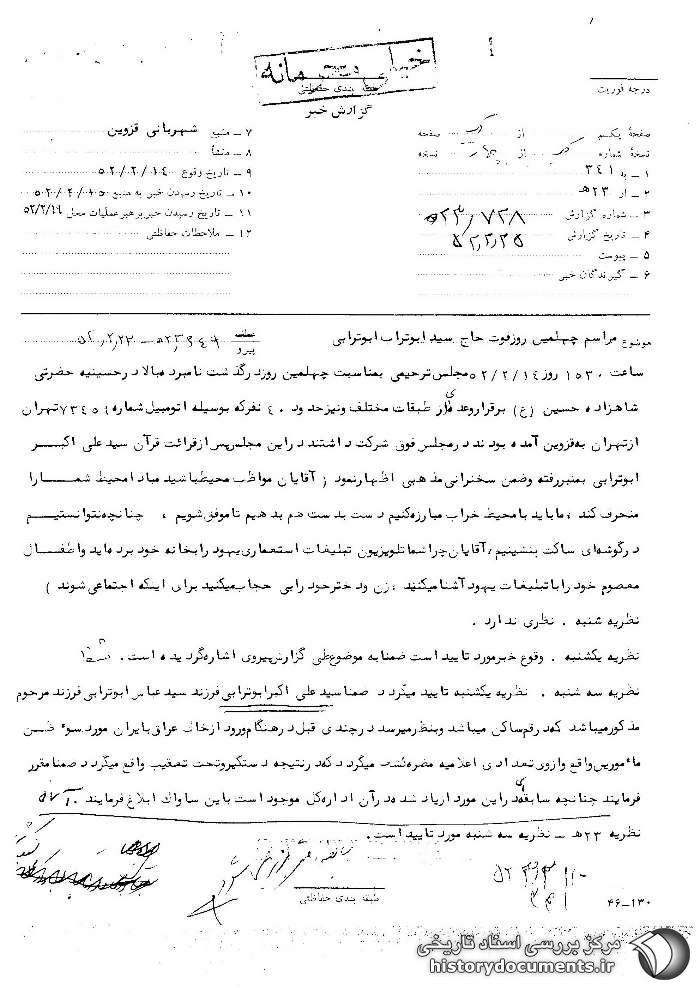 خیلی محرمانه
طبقه بندی حفاظتی
گزارش خبر
درجه فوریت
صفحهٔ یکم از یک صفحه
نسخهٔ شماره یک از چهار نسخه
۱ ـ به ۳٤۱
۲ ـ از ۲۳هـ
۳ ـ شماره گزارش ۵۲۳/۷۲۸
۴ ـ تاریخ گزارش ۵۲/۲/۲۵
۵ ـ پیوست
۶ ـ گیرندگان خبر
۷ ـ منبع شهربانی قزوین
۸ ـ منشأ
۹ ـ تاریخ وقوع ۵۲/۲/۱٤
۱۰ ـ تاریخ رسیدن خبر به منبع
۱۱ ـ تاریخ رسیدن خبر برهبر عملیات محل ۵۲/۲/۱۶
۱۲ ـ ملاحظات حفاظتی
موضوع مراسم چهلمین روز فوت حاج سید ابوتراب ابوترابی
عطف
پیرو
ساعت ۱۵۳۰ روز ۵۲/۲/۱٤ مجلس ترحیمی بمناسبت چهلمین روز درگذشت نامبرده بالا در حسینیه حضرتی
شاهزاده حسین (ع) برقرار وعده‌ای از طبقات مختلف و نیز حدود ٤۰ نفر که بوسیله اتومبیل شماره تهران
از تهران به قزوین آمده بودند در مجلس فوق شرکت داشتند در این مجلس پس از قرائت قرآن سید علی اکبر
ابوترابی بمنبر رفته وضمن سخنرانی مذهبی اظهار نمود ( آقایان مواظب محیط باشید مبادا محیط شما را
منحرف کند ، ما باید با محیط خراب مبارزه کنیم دست بدست هم بدهیم تا موفق شویم ، چنانچه نتوانستیم
در گوشه‌ای ساکت بنشینیم ، آقایان چرا شما تلویزیون تبلیغات استعماری یهود را بخانه خود برده‌اید واطفال
معصوم خود را با تبلیغات یهود آشنا میکنید ، زن ودختر خود را بی حجاب میکنید برای اینکه اجتماعی شوند )
نظریه شنبه . نظری ندارد .
نظریه یکشنبه . وقوع خبر مورد تایید است ضمنا به موضوع طی گزارش پیروی اشاره گردیده است .
نظریه سه شنبه . نظریه یکشنبه تایید میگردد ضمنا سید علی اکبر ابوترابی فرزند سید عباس ابوترابی فرزند مرحوم
مذکور میباشد که در قم ساکن میباشد وبنظر میرسد در چندی قبل در هنگام ورود از خاک عراق بایران مورد سوء ظن
مأمورین واقع واز وی تعدادی اعلامیه مضره کشف میگردد که در نتیجه دستگیر وتحت تعقیب واقع میگردد ضمنا مقرر
فرمایند چنانچه سابقه‌ای در این مورد از یاد شده در آن اداره کل موجود است باین ساواک ابلاغ فرمایند .
نظریه ۲۳هـ ـ نظریه سه شنبه مورد تایید است .
طبقه بندی حفاظتی
۴۶-۱۳۰
مرکز بررسی اسناد تاریخی
historydocuments.ir